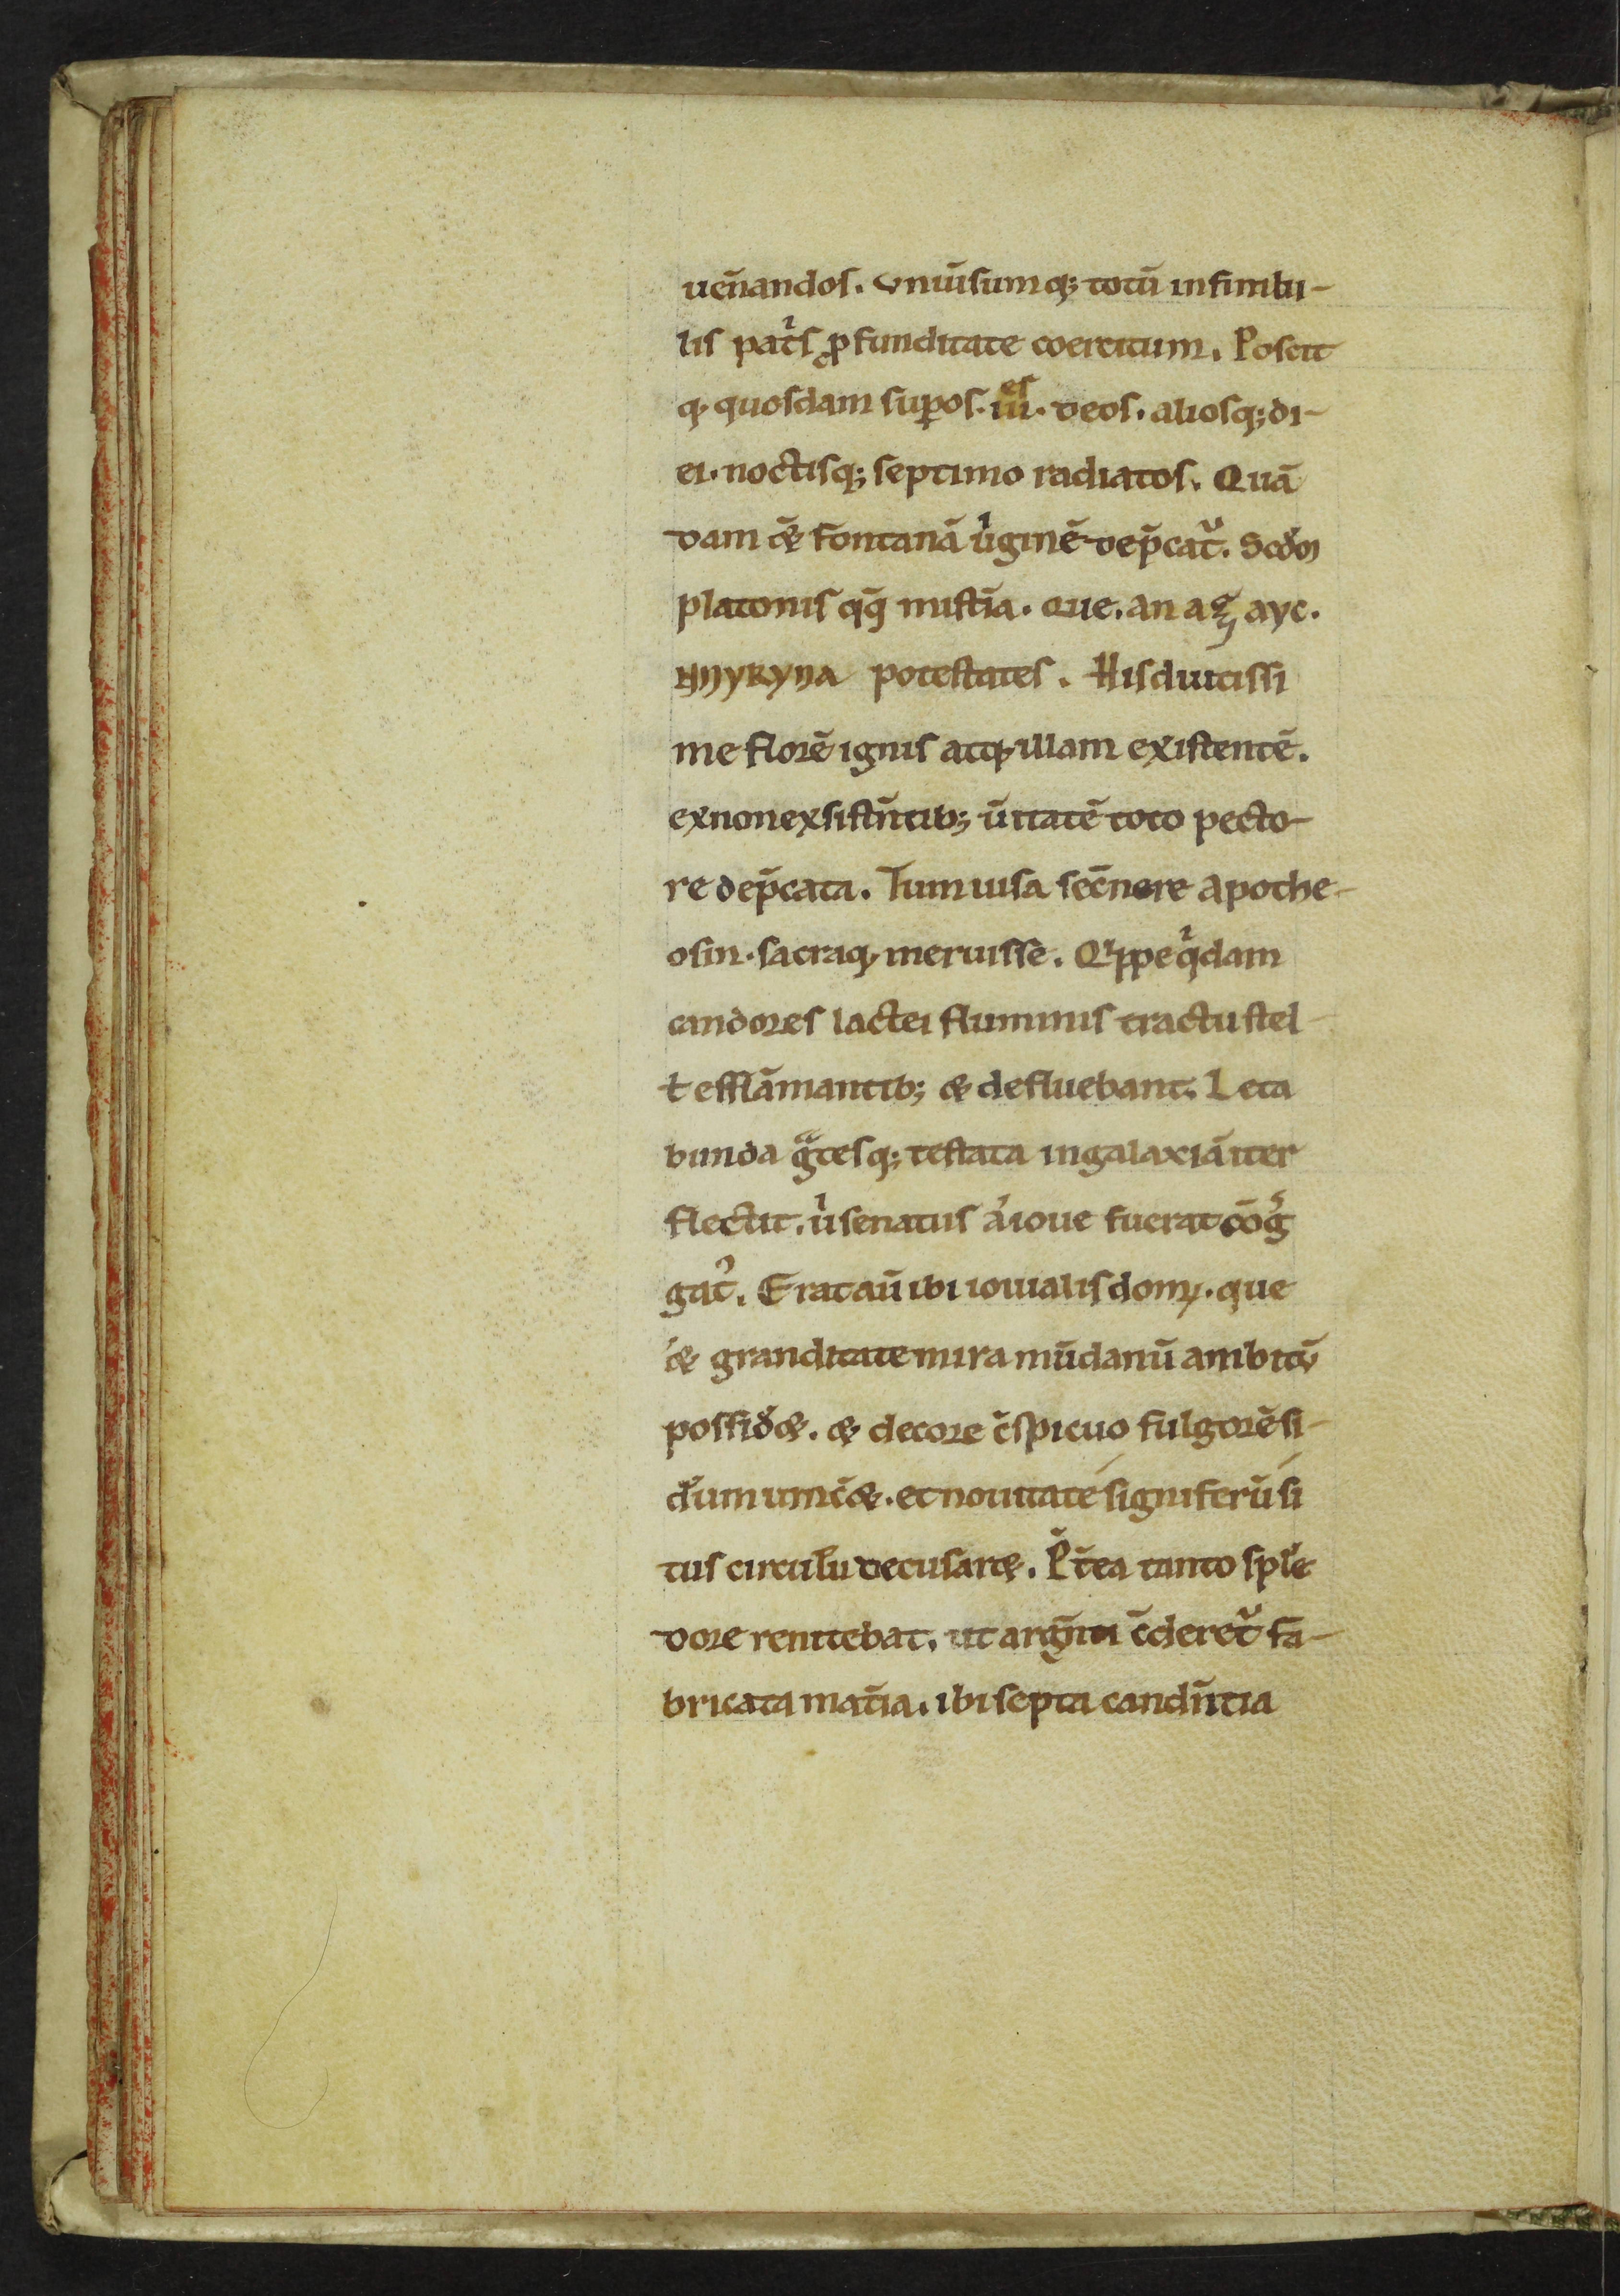 uen̄andos. vniūsumq; totū infinibi-
lis patͥs ꝓfunditate coercitum. Poscit
q, quosdam suꝑos. iii.es deos. aliosq; di-
ei. noctisq; septimo radiatos. Quā
dam &̄ fontanā uͥginē dep̄catᷣ. Scđm
platonis qq̄ mistīa. Que. an aꝫ ayc.
potestates. His diutissi
me florē ignis atq, illam existentē.
ex non exsistn̄tib; ūitatē toto pecto-
re dep̄cata. Tum uisa sec̄nere apothe-
osin. sacraq, meruisse. Qͥppe qͥdam
candores lactei fluminis tractu stel-
ł efflāmantib; & defluebant. Leta
bunda gͣtesq; testata in galaxiā iter
flectit. uͥ senatus a ioue fuerat cōg̃
gatꝰ. Erat aū ibi iouialis domꝰ. que
& granditate mira mūdanū ambitū
possid&. & decore c̄spicuo fulgorē si-
dum uinc&. et nouitate signiferū si
tus circuli decusar&. P̄t̄ea tanto splē
dore renitebat. ut argn̄ti c̄deretᷣ fa-
bricata mat̄ia. ibi septa candn̄tia